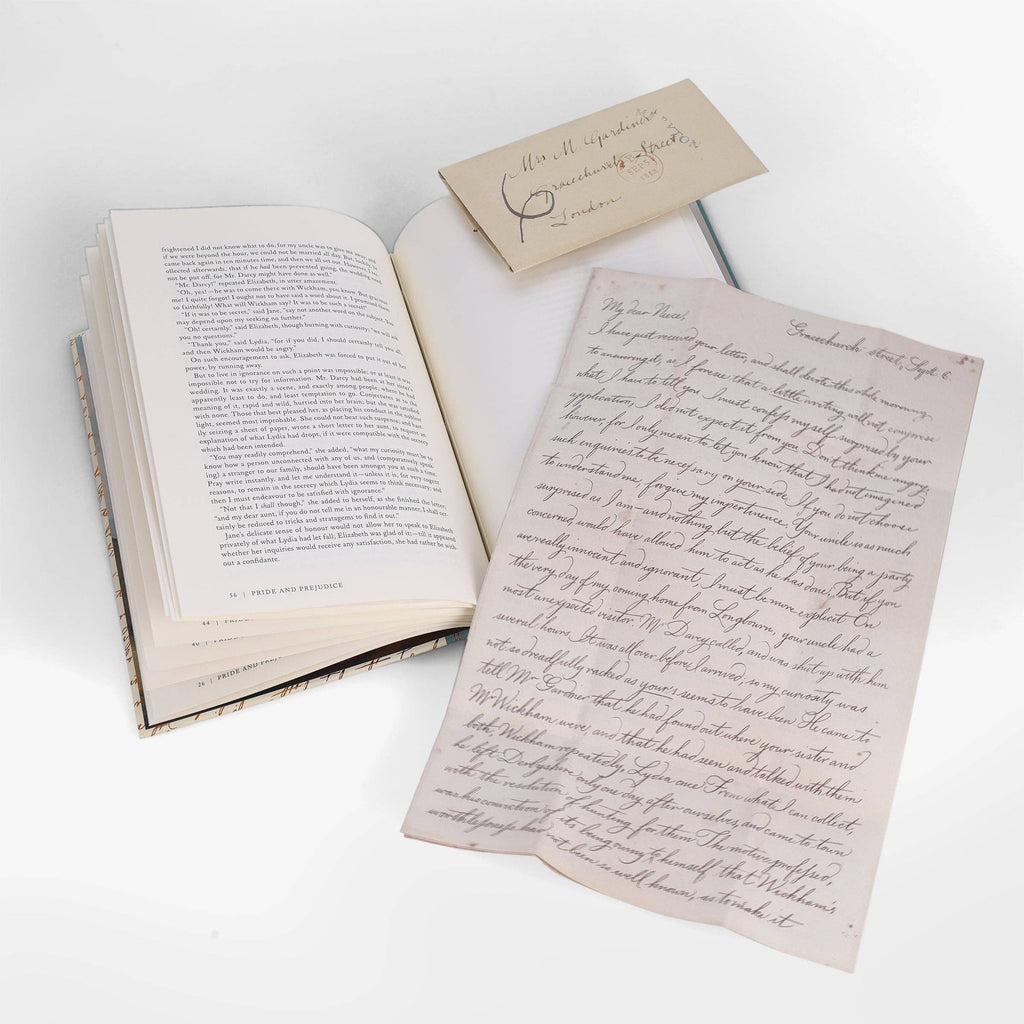 frightened I did not know what to do, for my uncle was to give me away; and
if we were beyond the hour, we could not be married all day. But, luckily, he
came back again in ten minutes time, and then we all set out. However, I
ollected afterwards, that if he had been prevented going, the wedding need
not be put off, for Mr. Darcy might have done as well."
"Mr. Darcy!" repeated Elizabeth, in utter amazement.
"Oh, yes!—he was to come there with Wickham, you know. But gracious
me! I quite forgot! I ought not to have said a word about it. I promised them
so faithfully! What will Wickham say? It was to be such a secret!"
"If it was to be secret," said Jane, "say not another word on the subject. You
may depend upon my seeking no further."
"Oh! certainly," said Elizabeth, though burning with curiosity; "we will ask
you no questions."
"Thank you," said Lydia, "for if you did, I should certainly tell you all,
and then Wickham would be angry."
On such encouragement to ask, Elizabeth was forced to put it out of her
power, by running away.
But to live in ignorance on such a point was impossible; or at least it was
impossible not to try for information. Mr. Darcy had been at her sister's
wedding. It was exactly a scene, and exactly among people, where he had
apparently least to do, and least temptation to go. Conjectures as to the
meaning of it, rapid and wild, hurried into her brain; but she was satisfied
with none. Those that best pleased her, as placing his conduct in the noblest
light, seemed most improbable. She could not bear such suspense; and hast-
ily seizing a sheet of paper, wrote a short letter to her aunt, to request an
explanation of what Lydia had dropt, if it were compatible with the secrecy
which had been intended.
"You may readily comprehend," she added, "what my curiosity must be to
know how a person unconnected with any of us, and (comparatively speak-
ing) a stranger to our family, should have been amongst you at such a time.
Pray write instantly, and let me understand it—unless it is, for very cogent
reasons, to remain in the secrecy which Lydia seems to think necessary; and
then I must endeavour to be satisfied with ignorance."
"Not that I shall though," she added to herself, as she finished the letter;
"and my dear aunt, if you do not tell me in an honourable manner, I shall cer-
tainly be reduced to tricks and stratagems to find it out."
Jane's delicate sense of honour would not allow her to speak to Elizabeth
privately of what Lydia had let fall; Elizabeth was glad of it;—till it appeared
whether her inquiries would receive any satisfaction, she had rather be with-
out a confidante.
56 | PRIDE AND PREJUDICE
44 | PRIDE
40 | PRIDE
26 | PRIDE AND PREJU
Mrs M Gardiner
Gracechurch Street
London
SEP 5
My dear Niece,
Gracechurch Street, Sept. 6.
I have just received your letter, and shall devote this whole morning
to answering it, as I foresee that a little writing will not comprise
what I have to tell you. I must confess myself surprised by your
application; I did not expect it from you. Don't think me angry,
however, for I only mean to let you know that I had not imagined
such enquiries to be necessary on your side. If you do not choose
to understand me, forgive my impertinence. Your uncle is as much
surprised as I am—and nothing but the belief of your being a party
concerned, would have allowed him to act as he has done. But if you
are really innocent and ignorant, I must be more explicit. On
the very day of my coming home from Longbourn, your uncle had a
most unexpected visitor. Mr Darcy called, and was shut up with him
several hours. It was all over before I arrived; so my curiosity was
not so dreadfully racked as your's seems to have been. He came to
tell Mr. Gardiner that he had found out where your sister and
Mr Wickham were, and that he had seen and talked with them
both, Wickham repeatedly, Lydia once. From what I can collect,
he left Derbyshire only one day after ourselves, and came to town
with the resolution of hunting for them. The motive professed,
was his conviction of its being owing to himself that Wickham's
worthlessness had not been so well known, as to make it